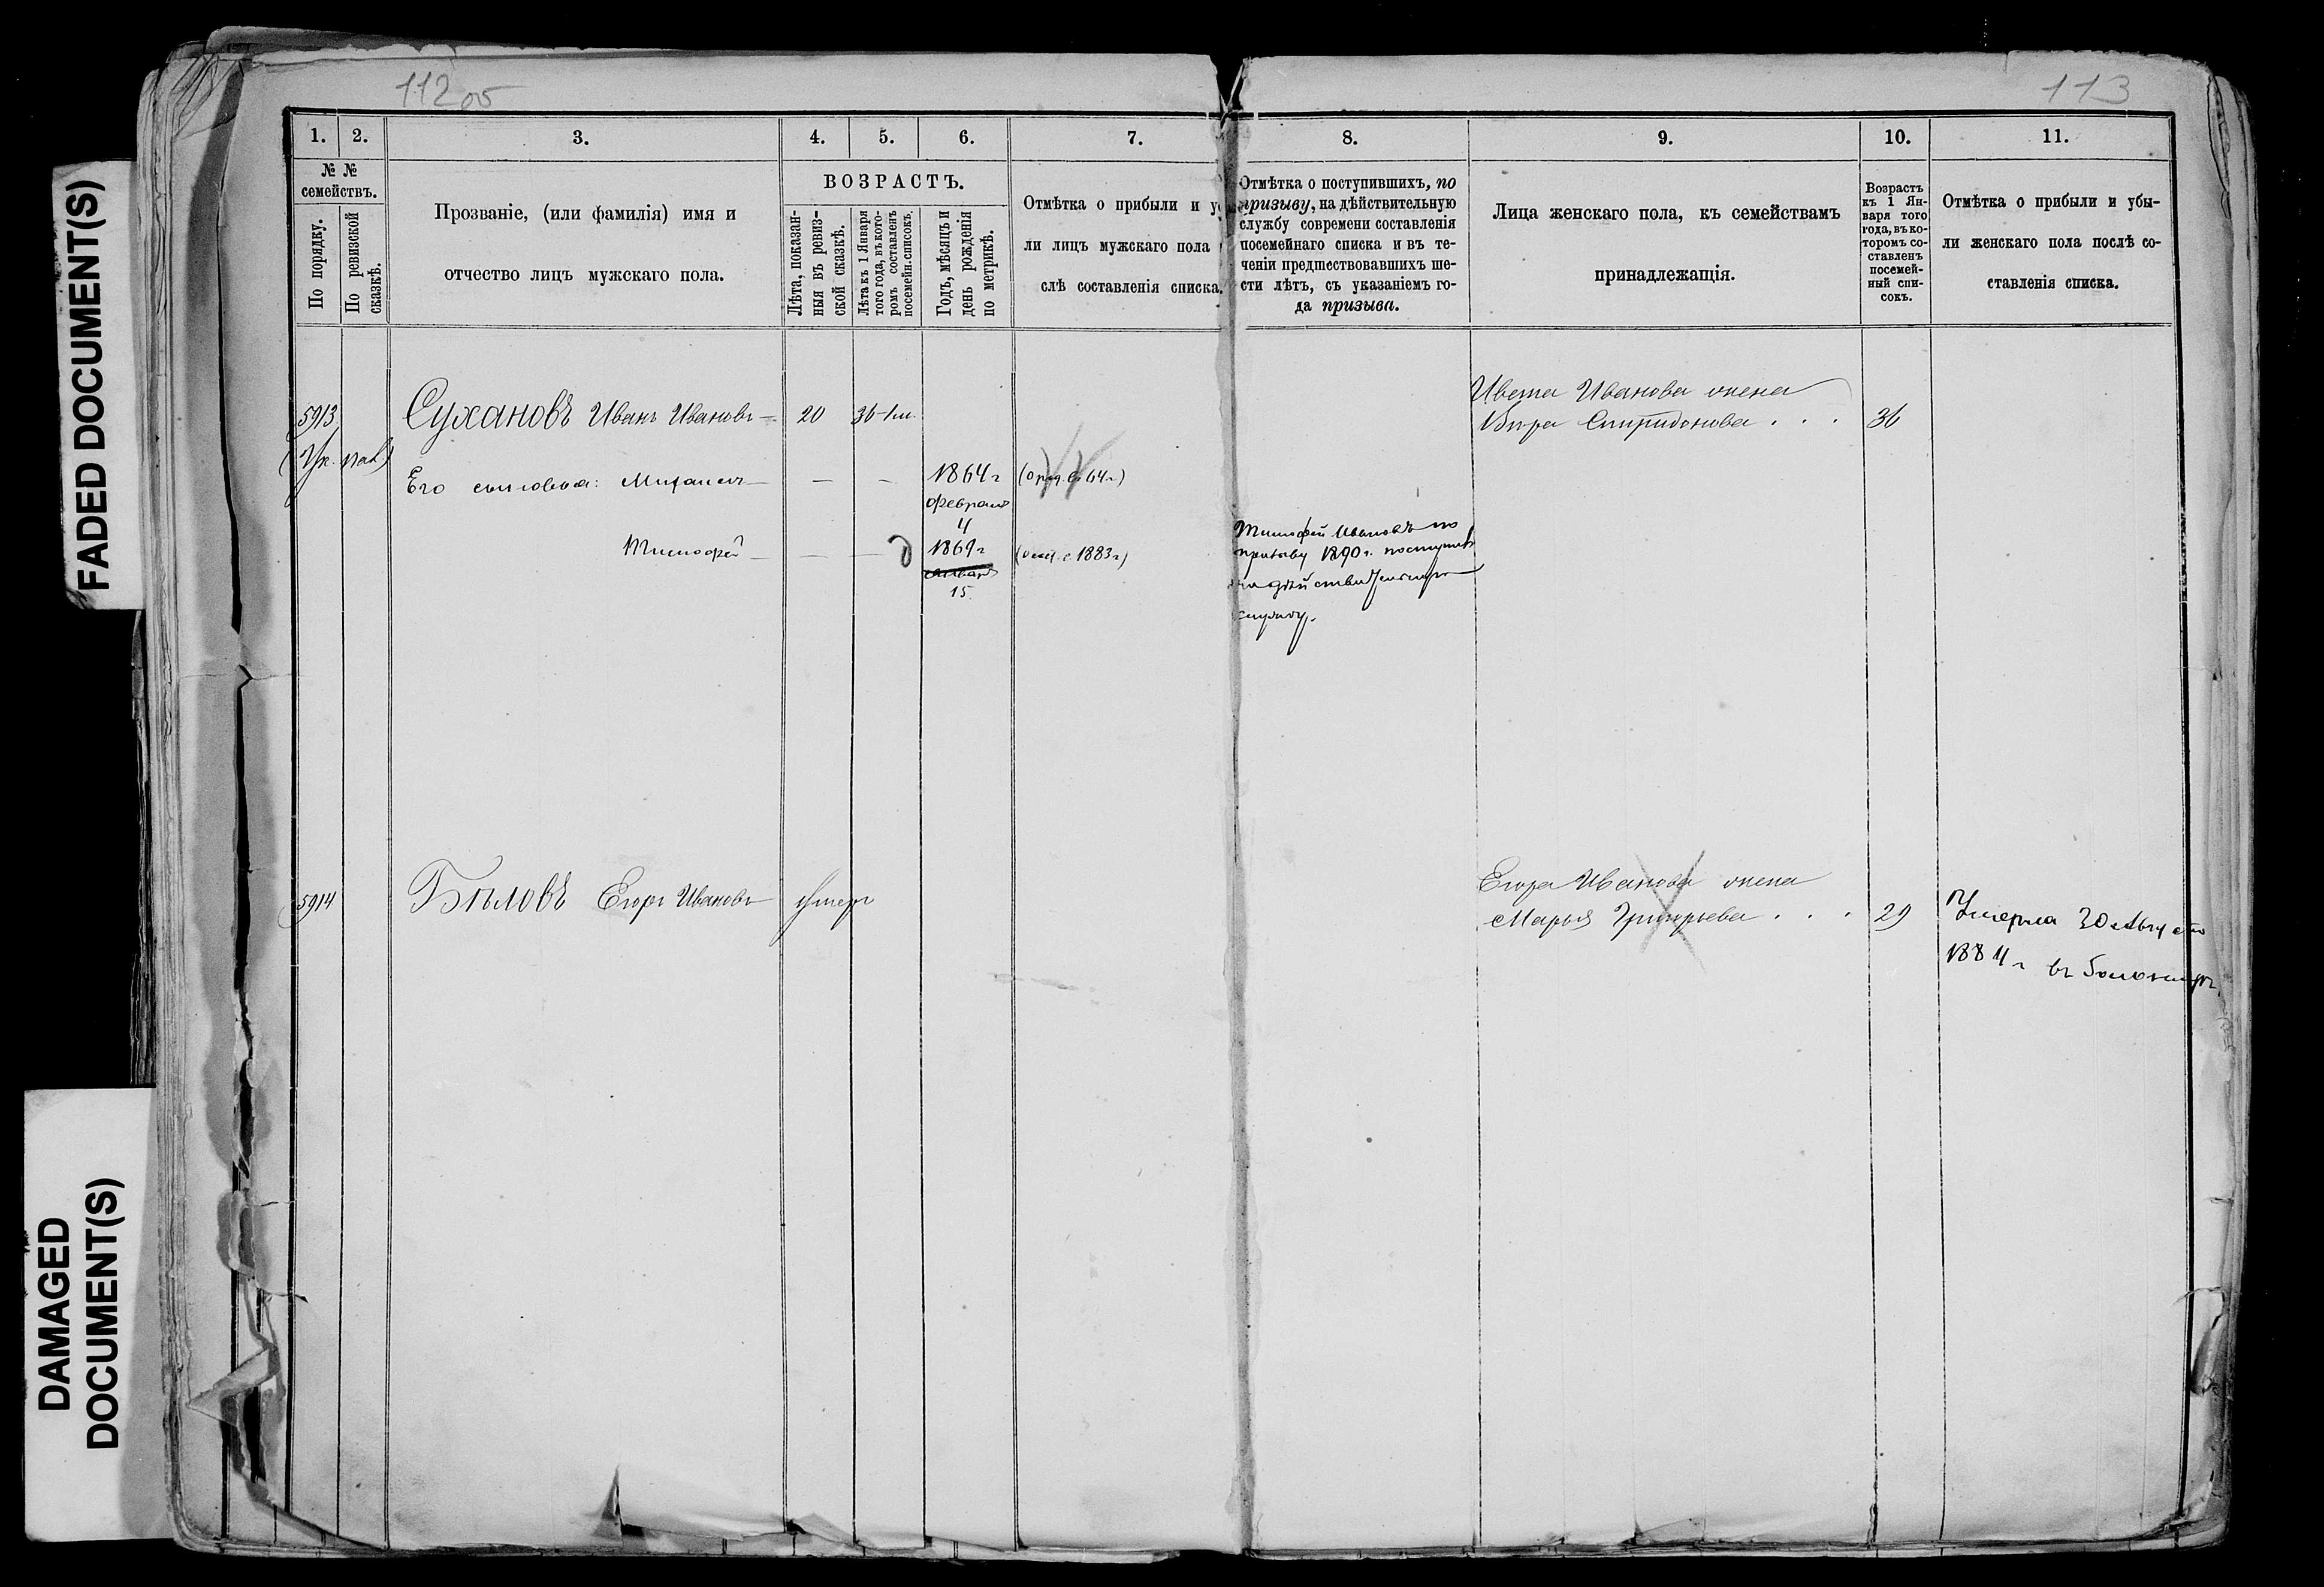 FADED DOCUMENT(S)
DAMAGED
DOCUMENT(S)
112 об
113
1.
2.
3.
4.
5.
6.
7.
8.
9.
10.
11.
№ №
семействъ.
По порядку.
По ревизской
сказкѣ.
Прозваніе, (или фамилія) имя и
отчество лицъ мужскаго пола.
ВОЗРАСТЪ.
Лѣта, показан-
ныя въ ревиз-
ской сказкѣ.
Лѣта къ 1 Января
того года, въ кото-
ромъ составленъ
посемейн. списокъ.
Годъ, мѣсяцъ и
день рожденія
по метрикѣ.
Отмѣтка о прибыли и у
ли лицъ мужскаго пола
слѣ составленія списка.
Отмѣтка о поступившихъ, по
призыву, на дѣйствительную
службу современи составленія
посемейнаго списка и въ те-
ченіи предшествовавшихъ ше-
сти лѣтъ, съ указаніемъ го-
да призыва.
Лица женскаго пола, къ семействамъ
принадлежащія.
Возрастъ
къ 1 Ян-
варя того
года, въ ко-
торомъ со-
ставленъ
посемей-
ный спи-
сокъ.
Отмѣтка о прибыли и убы-
ли женскаго пола послѣ со-
ставленія списка.
5913
Сухановъ Иванъ Ивановъ
20
36
Ивана Иванова жена
Вѣра Спиридонова . . .
36
Его сыновья: Михаилъ — — —
1864 г
февраля
4
Тимофей — — —
1869 г
января
15
1883 г)
Тимофей Ивановъ по
призыву 1890 г. поступилъ
на дѣйствительную
службу.
5914
Бѣловъ Егоръ Ивановъ
умеръ
Егора Иванова жена
Марья Григорьева . . .
29
Умерла 20 Августа
1884 г въ больницѣ.